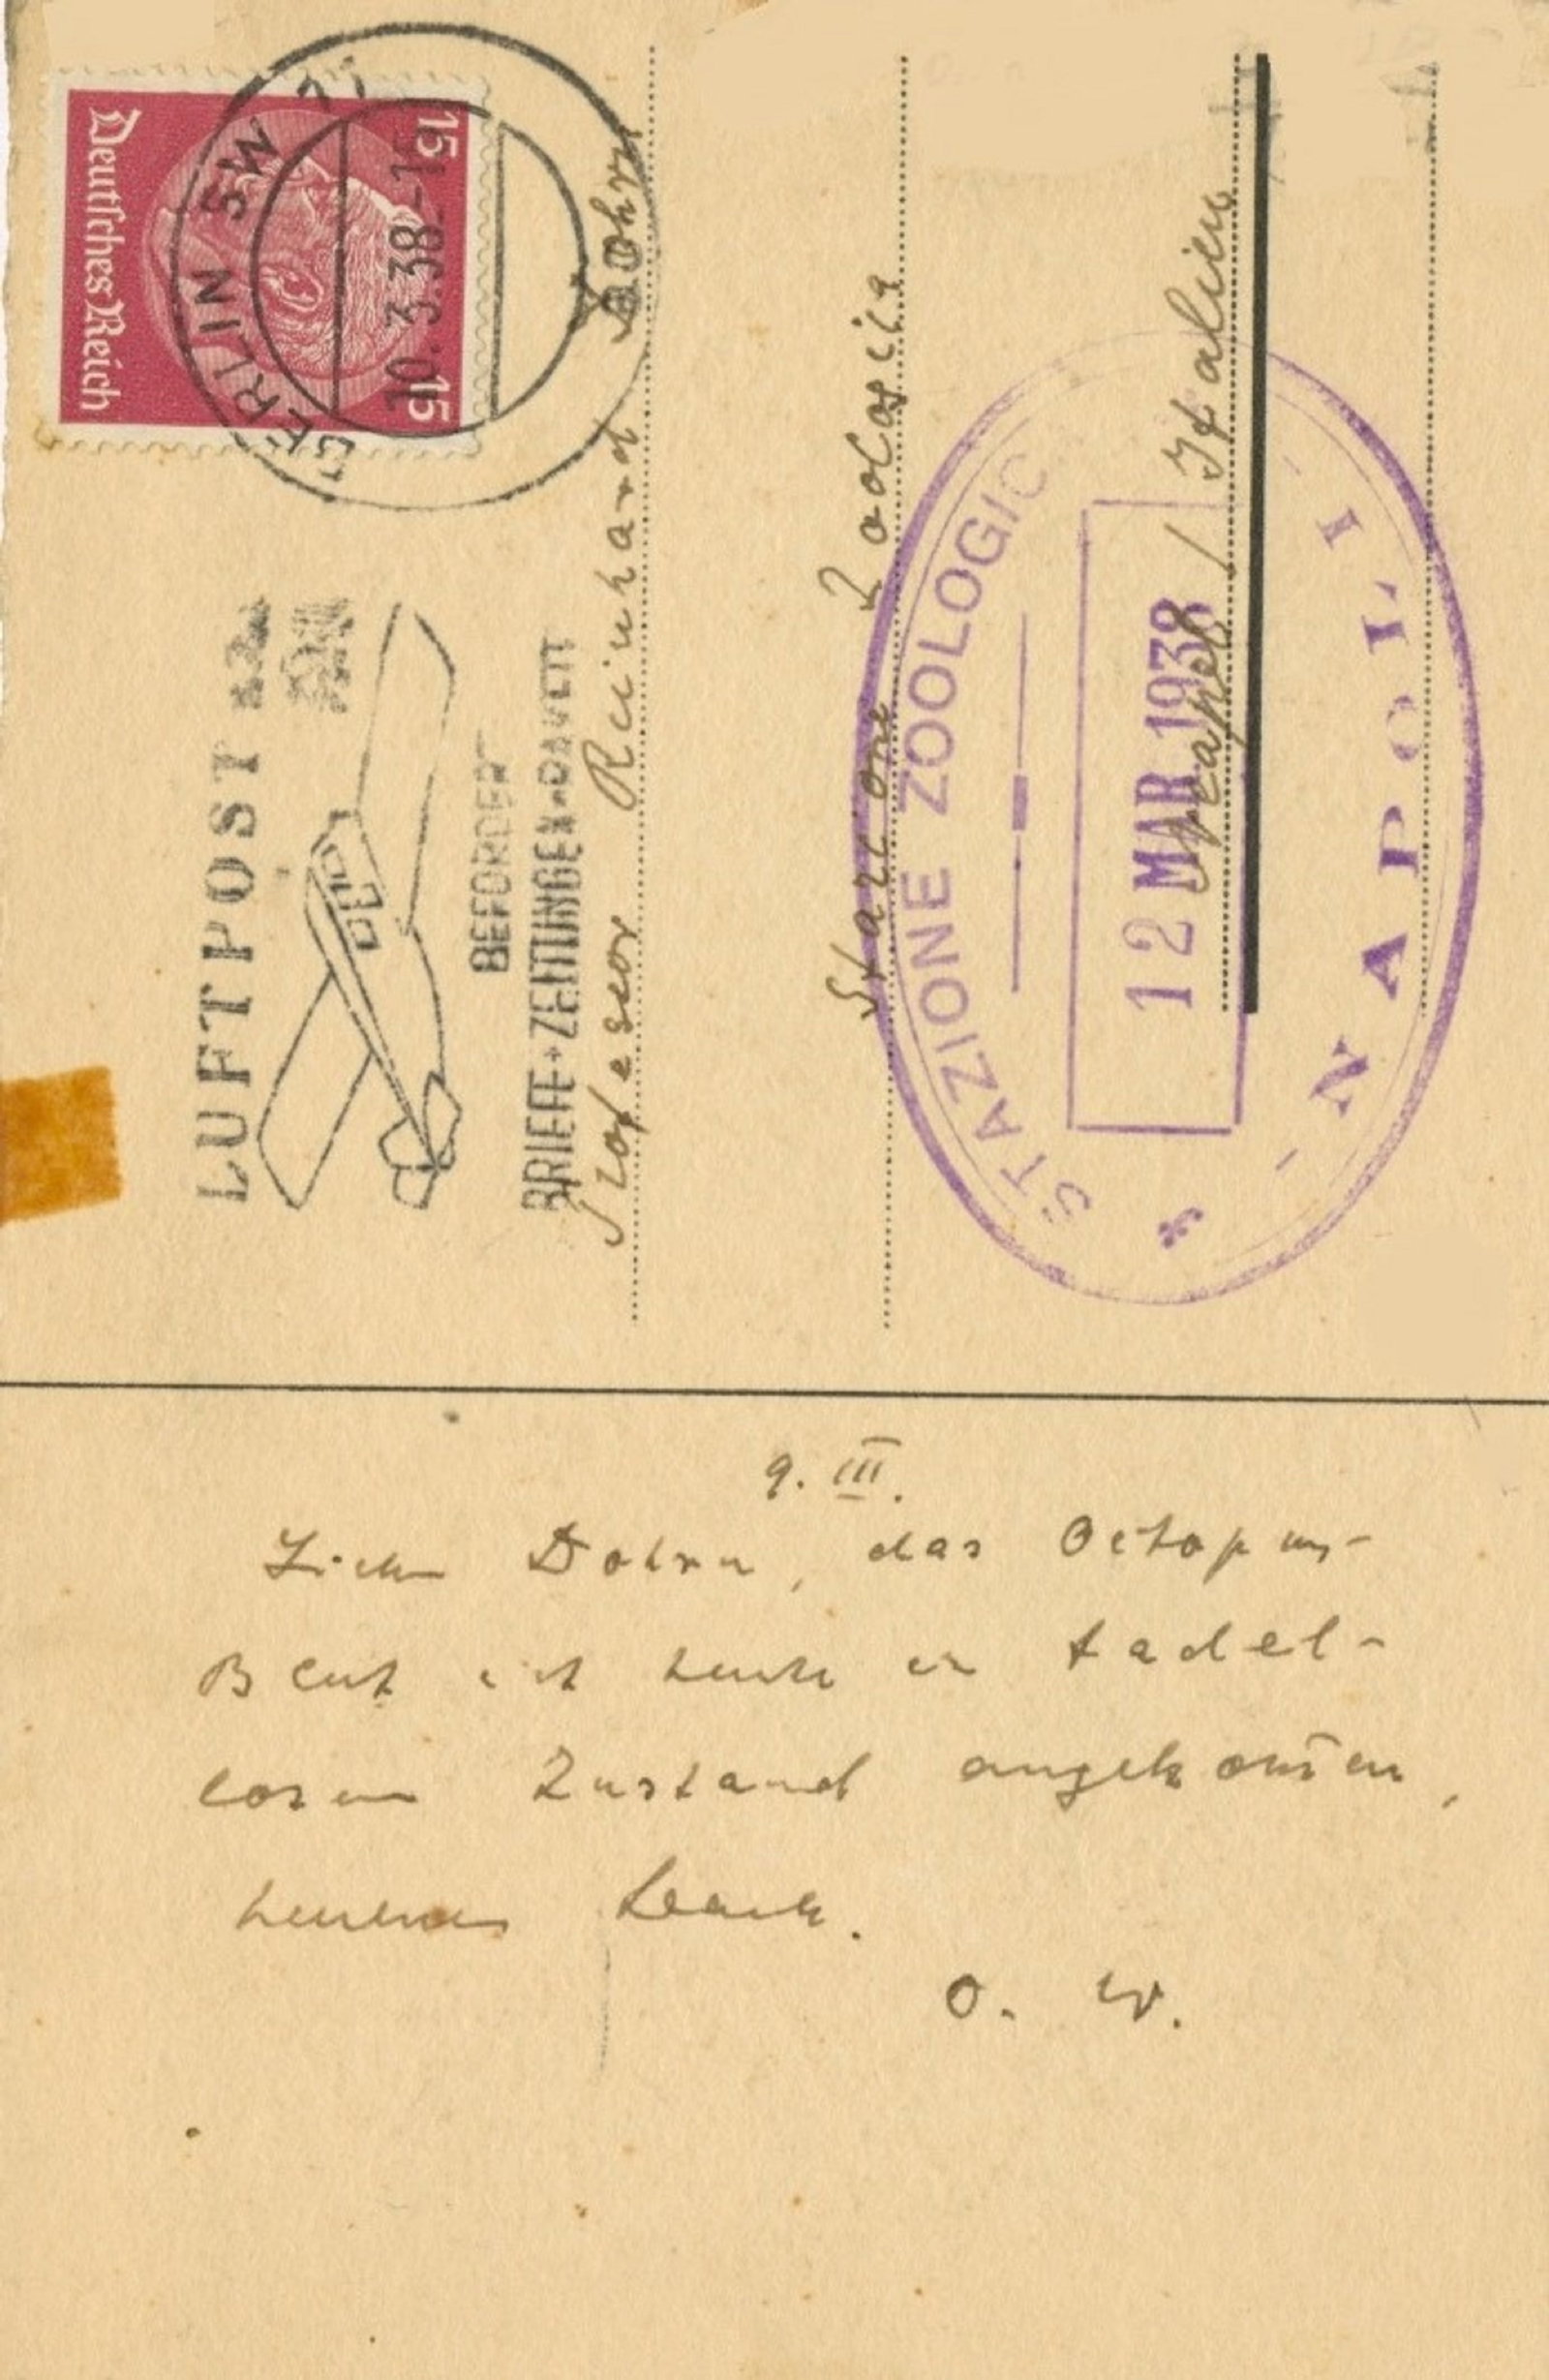 Deutsches Reich
15 15
BERLIN SW
10.3.38-1
LUFTPOST
BEFÖRDERT
BRIEFE+ZEITUNGEN+PAKETE
Professor Reinhard Dohrn
Stazione Zoologica
Neapel / Italien
STAZIONE ZOOLOGIC
12 MAR 1938
- NAPOLI -
9. III.
Lieber Dohrn, das Octopus-
Blut ist heute in tadel-
losem Zustand angekom̅en,
besten Dank.
O. W.